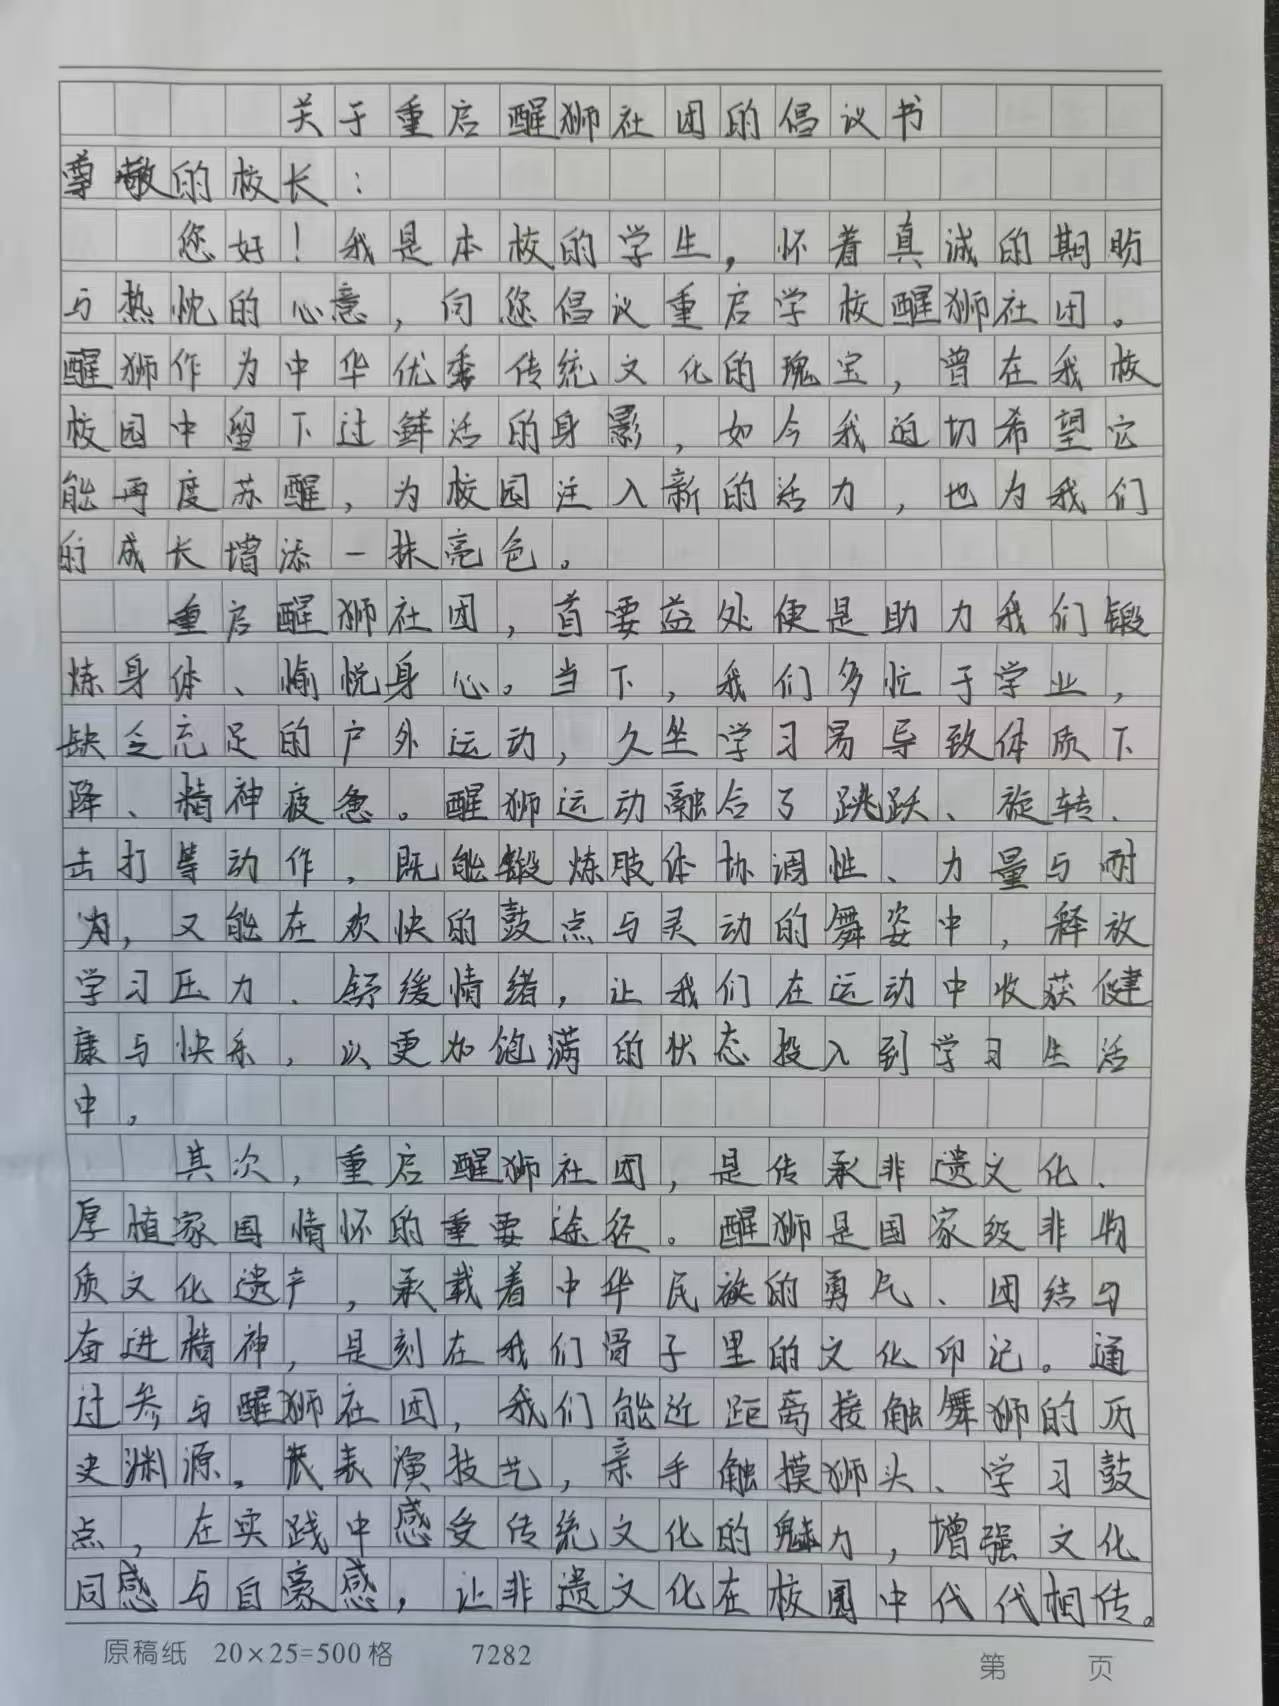 关于重启醒狮社团的倡议书
尊敬的校长：
您好！我是本校的学生，怀着真诚的期盼
与热忱的心意，向您倡议重启学校醒狮社团。
醒狮作为中华优秀传统文化的瑰宝，曾在我校
校园中留下过鲜活的身影，如今我迫切希望它
能再度苏醒，为校园注入新的活力，也为我们
的成长增添一抹亮色。
重启醒狮社团，首要益处便是助力我们锻
炼身体、愉悦身心。当下，我们多忙于学业，
缺乏充足的户外运动，久坐学习易导致体质下
降、精神疲惫。醒狮运动融合了跳跃、旋转、
击打等动作，既能锻炼肢体协调性、力量与耐
力，又能在欢快的鼓点与灵动的舞姿中，释放
学习压力、舒缓情绪，让我们在运动中收获健
康与快乐，以更加饱满的状态投入到学习生活
中。
其次，重启醒狮社团，是传承非遗文化、
厚植家国情怀的重要途径。醒狮是国家级非物
质文化遗产，承载着中华民族的勇气、团结与
奋进精神，是刻在我们骨子里的文化印记。通
过参与醒狮社团，我们能近距离接触舞狮的历
史渊源。表演技艺，亲手触摸狮头、学习鼓
点，在实践中感受传统文化的魅力，增强文化
同感与自豪感，让非遗文化在校园中代代相传。
原稿纸 20×25=500格 7282 第 页